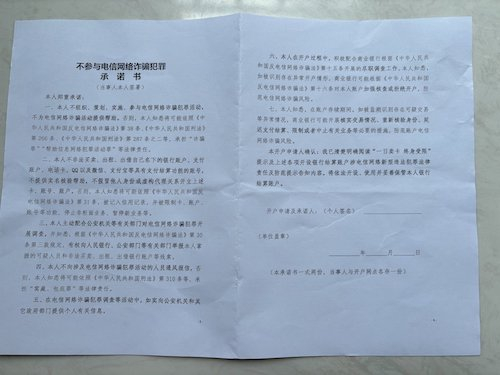 不参与电信网络诈骗犯罪
承 诺 书
（当事人本人签署）
本人郑重承诺：
一、本人不组织、策划、实施、参与电信网络诈骗犯罪活动，
不为电信网络诈骗活动提供帮助。否则，本人知悉将可能依照《中
华人民共和国反电信网络诈骗法》第 38 条、《中华人民共和国刑法》
第 266 条、《中华人民共和国刑法》第 287 条之二等，承担“诈骗
罪”“帮助信息网络犯罪活动罪”等法律责任。
二、本人不非法买卖、出租、出借自己名下的银行账户、支付
账户、电话卡、QQ 以及微信、支付宝等具有支付结算功能的账号，
不提供实名核验帮助，不假冒他人身份或虚构代理关系开立上述
卡、账号、账户。否则，本人知悉将可能依照《中华人民共和国反
电信网络诈骗法》第 31 条，被记入信用记录，并被限制卡、账户、
账号等功能、停止非柜面业务、暂停新业务等。
三、本人主动配合公安机关等部门对电信网络诈骗犯罪开
展调查，并知悉，依照《中华人民共和国反电信网络诈骗法》第 30
条第三款规定，有权向人民银行、公安部门等有关部门举报本人掌
握的可疑人员和非法买卖、出租、出借银行账户等线索。
四、本人不向涉及电信网络诈骗犯罪活动的人员通风报信，否
则，本人知悉将可能依照《中华人民共和国刑法》第 310 条等，承
担“窝藏、包庇罪”等法律责任。
五、在电信网络诈骗犯罪调查等活动中，如实向公安机关和其
它政府部门提供个人有关信息。
六、本人在开户过程中，积极配合商业银行根据《中华人民共
和国反电信网络诈骗法》第十五条开展的尽职调查工作。本人知悉，
如被识别存在异常开户情形，商业银行可能根据《中华人民共和国
反电信网络诈骗法》第十六条对本人账户加强核查或拒绝开户，防
范电信网络诈骗风险。
七、本人知悉，在账户存续期间，如被监测识别存在可疑交易
等异常情况，商业银行可能会开展核实交易情况、重新核验身份、延
迟支付结算、限制或者中止有关业务等必要的措施，防范账户电信
网络诈骗风险。
本开户申请人确认：我已清楚明确阅读“一日卖卡 终身受限”
提示及上述各项开设银行结算账户涉电信网络新型违法犯罪法律
责任及防范提示告知内容，将依法开设、使用并妥善保管本人银行
结算账户。
开户申请及承诺人：（个人签名）
（单位盖章）
年 月 日
（本承诺书一式两份，当事人与开户网点各存一份）